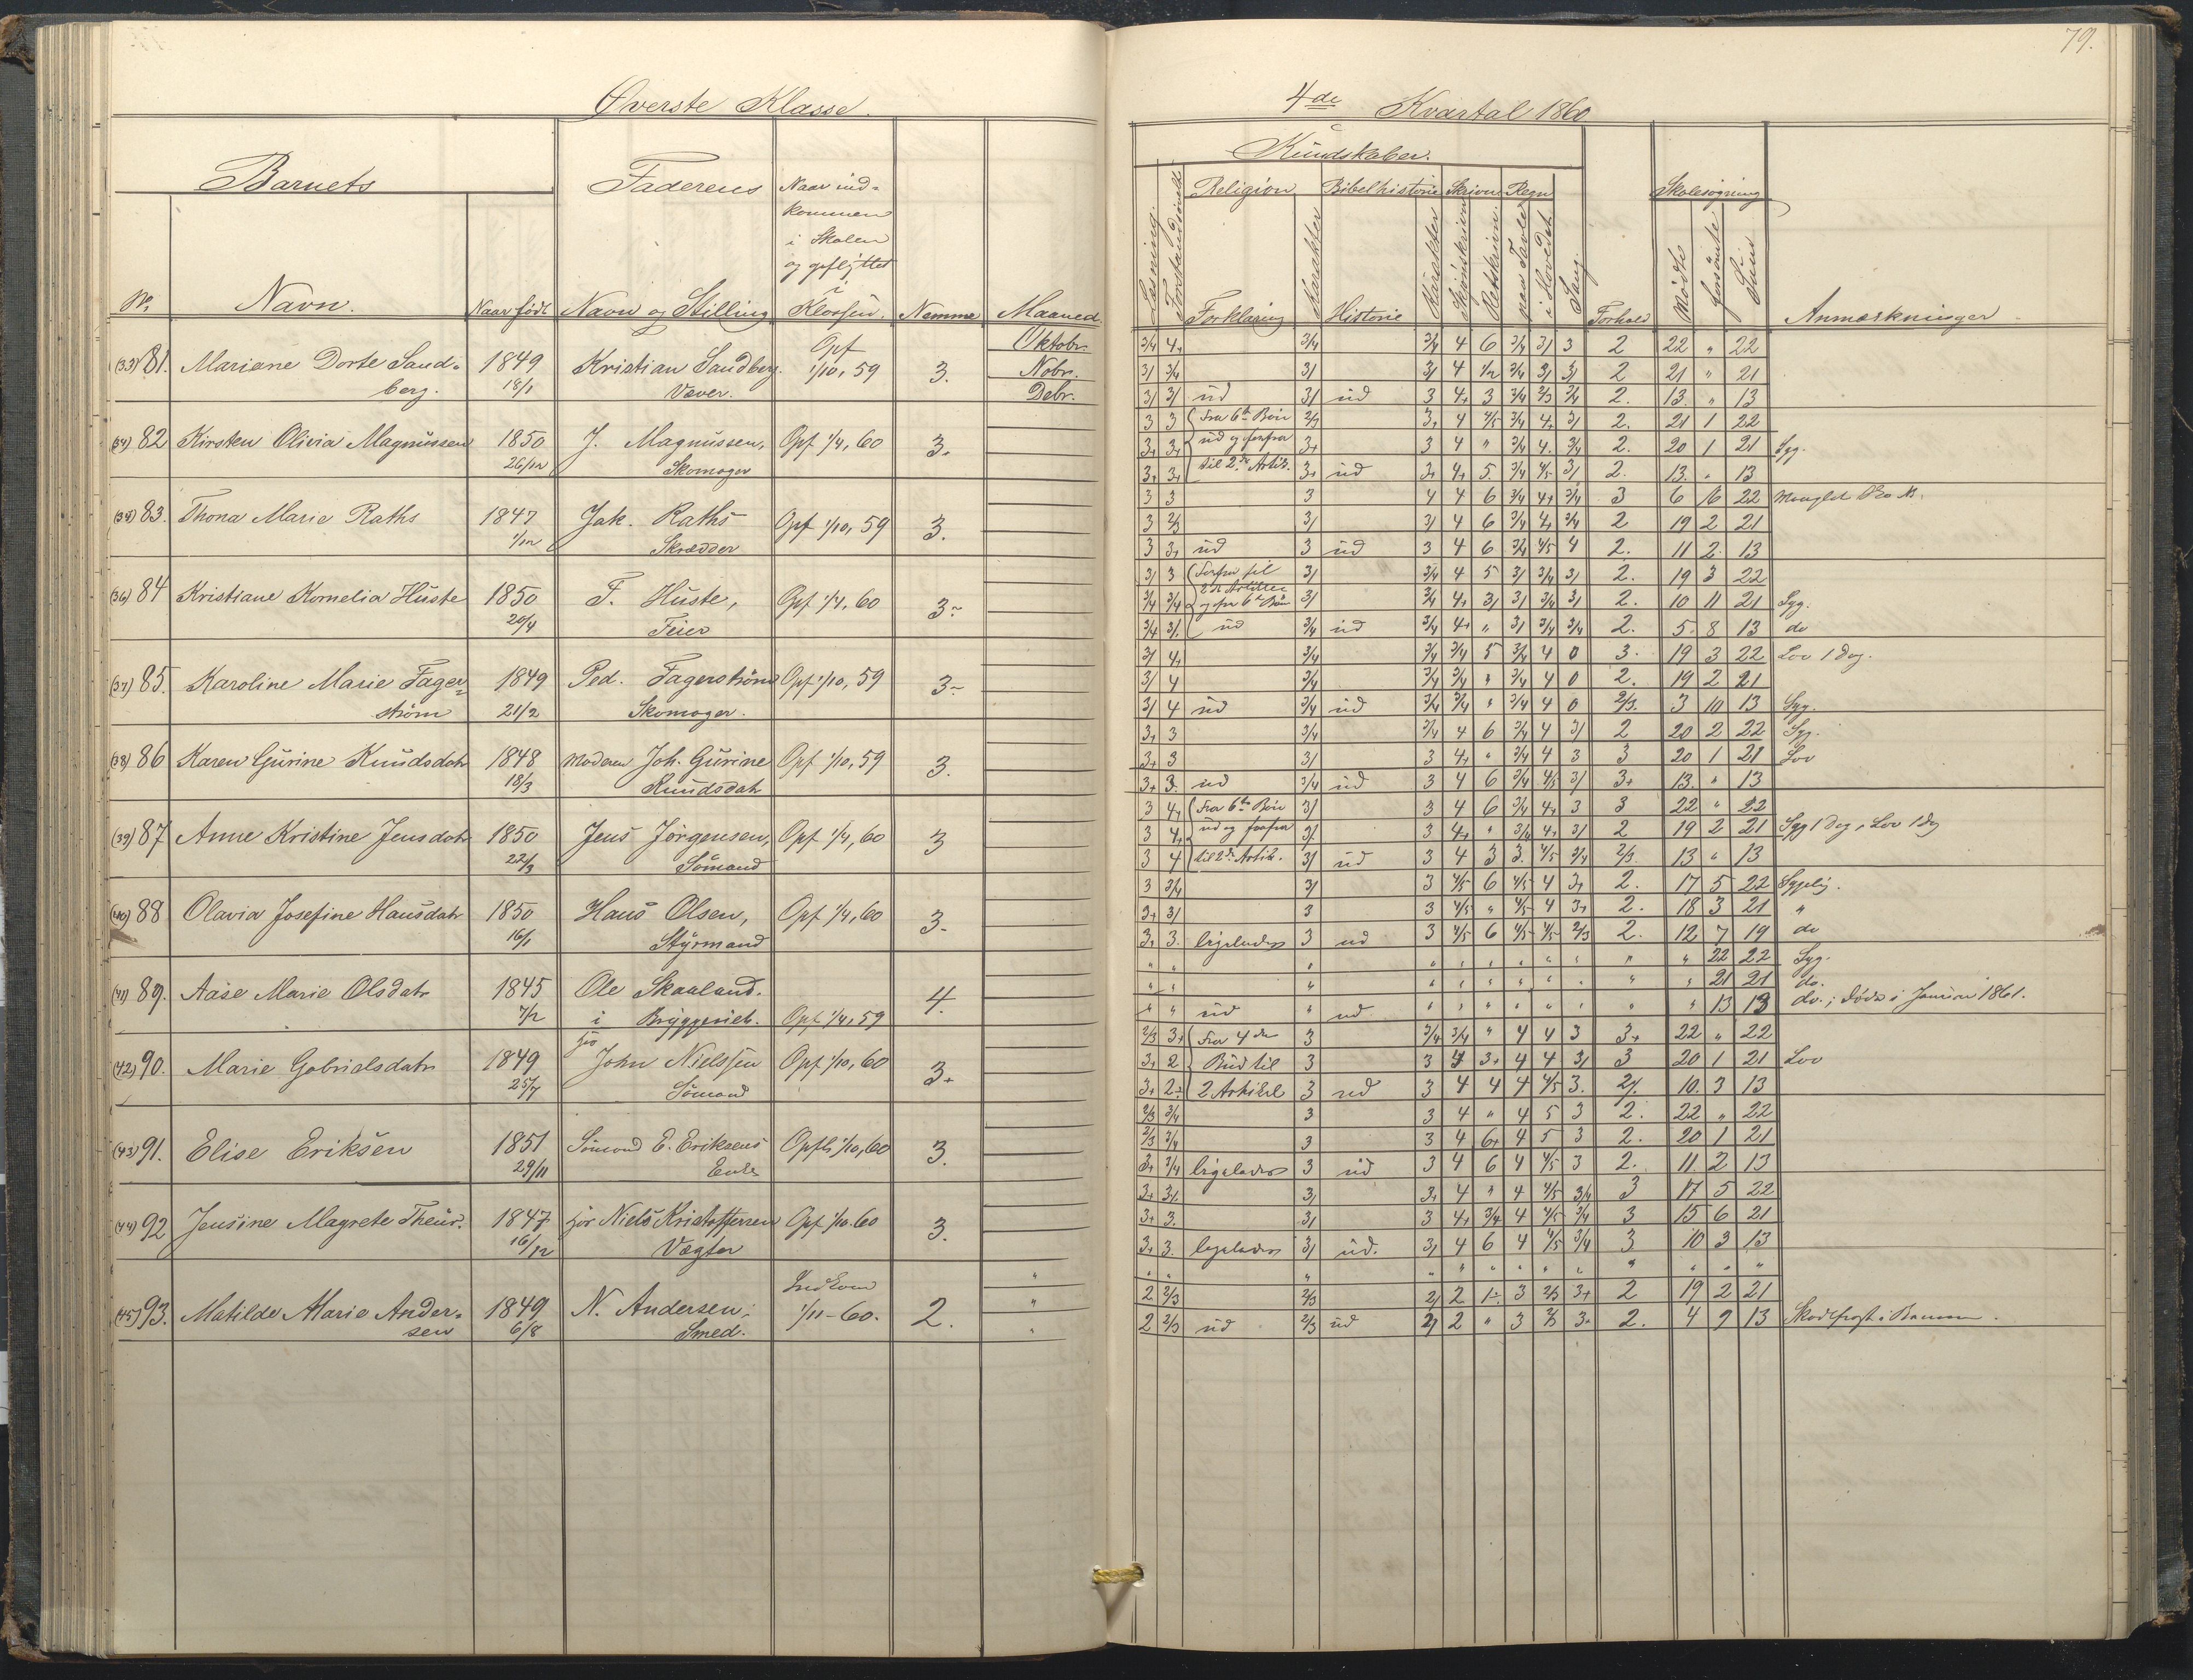 79.
Øverste Klasse.
4de Kvartal 1860
Barnets
Faderens
Naar ind-
kommen
i Skolen
og opflyttet
i
Klassen.
No.
Navn.
Naar født
Navn og Stilling
Nemme
Maaned
Kundskaber.
Læsning.
Religion
Forklaring
Karakter
Bibelhistorie
Historie
Karakter
Skrivn.
Skjönskrivn
Retskrivn.
Regn
paa Tavle
i Hovedet
Sang.
Forhold
Skolesögning
Mødte
forsömte
Sum
Anmærkninger
Oktobr.
Nobr.
Debr.
(33) 81. Mariane Dorte Sand-
berg.
1849
18/1
Kristian Sandberg.
Væver.
Opf
1/10, 59
3.
3/4 4+ 3/4 3/4 4 6 3/4 3/ 3 2 22 " 22
3/ 3/4 3/ 3/ 4 1/2 3/4 3/ 3/ 2 21 " 21
3/ 3/ ud 3/ ud 3 4+ 3 3/4 2/3 3/4 2. 13. " 13
(34) 82 Kirsten Olivia Magnussen
1850
26/12
J. Magnussen,
Skomager
Opf 1/4, 60
3.
3 3 Fra 6te Bøn 2/3 3+ 4 4/5 3/4 4+ 3/ 2. 21 1 22
3+ 3+ ud og forfra 3+ 3 4 " 3/4 4. 3/4 2. 20 1 21 Syg.
3+ 3+ til 2den Artik. 3+ ud 3+ 4+ 5. 3/4 4/5 3/ 2. 13. " 13
(35) 83. Thona Marie Raths
1847
1/12
Jak. Raths
Skrædder
Opf 1/10, 59
3.
3 3 3 4 4 6 3/4 4+ 3/4 3 6 16 22
3 2/3 3/ 3/ 4 6 3/4 4+ 3/4 2 19 2 21
3 3+ ud 3 ud 3 4 6 3/4 4/5 4 2. 11 2. 13
(36) 84 Kristiane Kornelia Huste
1850
20/4
F. Huste,
Feier
Opf 1/4, 60
3-
3/ 3 Forfra til 3/ 3/4 4 5 3/ 3/4 3/ 2. 19 3 22
3/4 3/4 2den Artikel 3/ 3/4 4+ 3/ 3/ 3/4 3/ 2. 10 11 21 Syg.
og fra 6te Bøn
3/4 3/. ud 3/4 ud 3/4 4+ " 3/ 3/4 3/4 2. 5. 8 13 do
(37) 85. Karoline Marie Fager-
strøm
1849
21/2
Ped. Fagerstrøm
Skomager.
Opf 1/10, 59
3-
3/ 4+ 3/4 3/4 3/4 5 3/4 4 0 3. 19 3 22 Lov 1 Dag.
3/ 4 3/4 3/4 3/4 " 3/4 4 0 2. 19 2 21
3/ 4 ud 3/4 ud 3/4 3/4 " 3/4 4 0 2/3. 3 10 13 Syg.
(38) 86 Karen Gurine Knudsdatr
1848
18/3
Moderen Joh. Gurine
Knudsdatr
Opf 1/10, 59
3.
3+ 3 3/4 3/4 4 6 3/4 4 3/ 2 20 2 22 Syg.
3+ 3 3/ 3 4+ " 3/4 4 3 3 20 1 21 Lov
3+ 3. ud 3/4 ud 3 4 6 3/4 4/5 3/ 3+ 13. " 13
(39) 87 Anne Kristine Jensdatr
1850
22/3
Jens Jørgensen,
Sömand
Opf 1/4, 60
3
3 4+ Fra 6te Bøn 3/ 3 4 6 3/4 4+ 3 3 22 " 22
3 4+ ud og forfra 3/. 3 4+ " 3/4 4+ 3/ 2 19 2 21 Syg 1 Dag, Lov 1 Dag
3 4 til 2den Artik. 3/ ud 3 4 3 3. 4/5 3/4 2/3 13 " 13
(40) 88 Olavia Josefine Hansdatr
1850
16/1
Hans Olsen,
Styrmand
Opf 1/4, 60
3-
3 3/4 3/ 3 4/5 6 4/5 4 3+ 2. 17 5 22 Sygelig.
3+ 3/ 3 3 4/5 " 4/5 4 3+ 2. 18 3 21 "
3+ 3. ligeledes 3 ud 3 4/5 6 4/5 4/5 2/3 2. 12 7 19 do
(41) 89. Aase Marie Olsdatr
1845
7/2
Ole Skaaland.
i
Opf 1/4, 59
4.
" " " " " " " " " " " 22 22 Syg.
" " " " " " " " " " " 21 21 do.
" " ud " ud " " " " " " " " 13 13 do.; døde i Januar 1861.
(42) 90. Marie Gabrielsdatr
1849
25/7
hos
John Nielssen
Sömand
Opf 1/10, 60
3+
2/3 3+ Fra 4de 3 3/4 3/4 " 4 4 3 3+ 22 " 22
3+ 2 Bud til 3 3 4 3+ 4 4 3/ 3 20 1 21 Lov
3+ 2+ 2 Artikel 3 ud 3 4 4 4 4/5 3. 2/. 10. 3 13
(43) 91. Elise Eriksen
1851
29/11
Sömand E. Eriksens
Enke
Opfl 1/10, 60
3.
2/3 3/4 3 3 4 " 4 5 3 2. 22 " 22
2/3 3/4 3 3 4 6+ 4 5 3 2. 20 1 21
3+ 3/4 ligeledes 3 ud 3 4 6 4 4/5 3 2. 11. 2 13
(44) 92 Jensine Magrete Theur.
1847
16/12
hos Niels Kristoffersen
Vægter
Opf 1/10 60
3.
3+ 3/. 3/ 3+ 4 " 4 4/5 3/4 3 17 5 22
3+ 3. 3/ 3 4+ 3/4 4 4/5 3/4 3 15 6 21
3+ 3. ligeledes 3/ ud. 3/ 4 6 4 4/5 3/4 3 10 3 13
(45) 93. Matilde Marie Ander-
sen
1849
6/8
N. Andersen,
Smed.
Indkom
1/11-60.
2.
" " " " " " " " " " " " "
2 2/3 2/3 2/ 2 1÷ 3 2/3 3+ 2 19 2 21
2 2/3 ud 2/3 ud 2/ 2 " 3 2/3 3. 2. 4 9 13